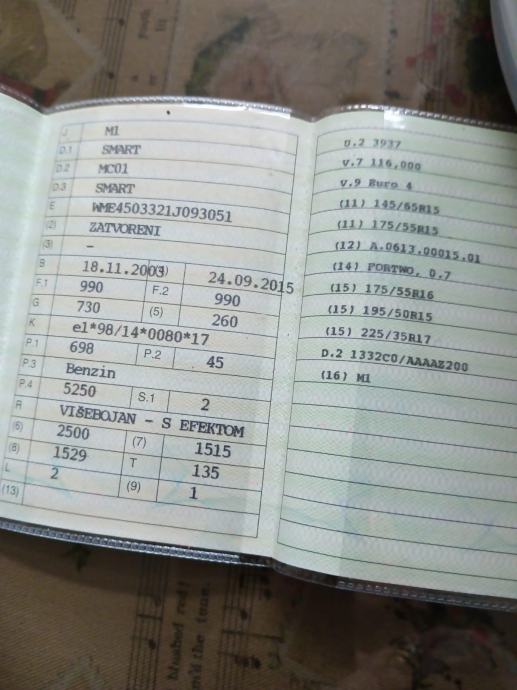 J M1
D.1 SMART
D.2 MC01
D.3 SMART
E WME4503321J093051
(2) ZATVORENI
(3) -
B 18.11.2003 (4) 24.09.2015
F.1 990 F.2 990
G 730 (5) 260
K e1*98/14*0080*17
P.1 698 P.2 45
P.3 Benzin
P.4 5250 S.1 2
R VIŠEBOJAN - S EFEKTOM
(6) 2500 (7) 1515
(8) 1529 T 135
L 2 (9) 1
(13)
U.2 3937
V.7 116,000
V.9 Euro 4
(11) 145/65R15
(11) 175/55R15
(12) A.0613.00015.01
(14) FORTWO, 0.7
(15) 175/55R16
(15) 195/50R15
(15) 225/35R17
D.2 1332C0/AAAAZ200
(16) M1